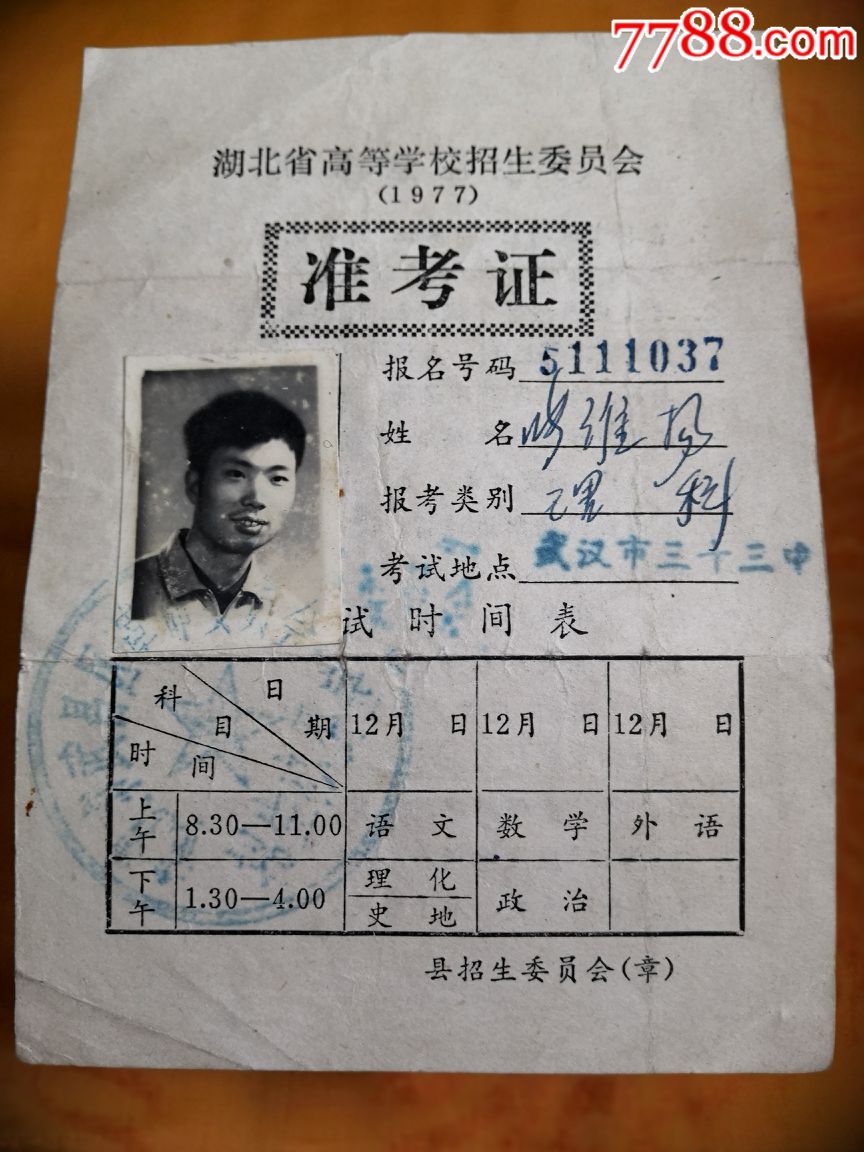 7788.com
湖北省高等学校招生委员会
(1977)
准考证
报名号码 5111037
姓名 维
报考类别 理科
考试地点 武汉市三十三中
试时间表
科目 日期 时间 12月 日 12月 日 12月 日
上午 8.30—11.00 语文 数学 外语
下午 1.30—4.00 理化 史地 政治
县招生委员会(章)